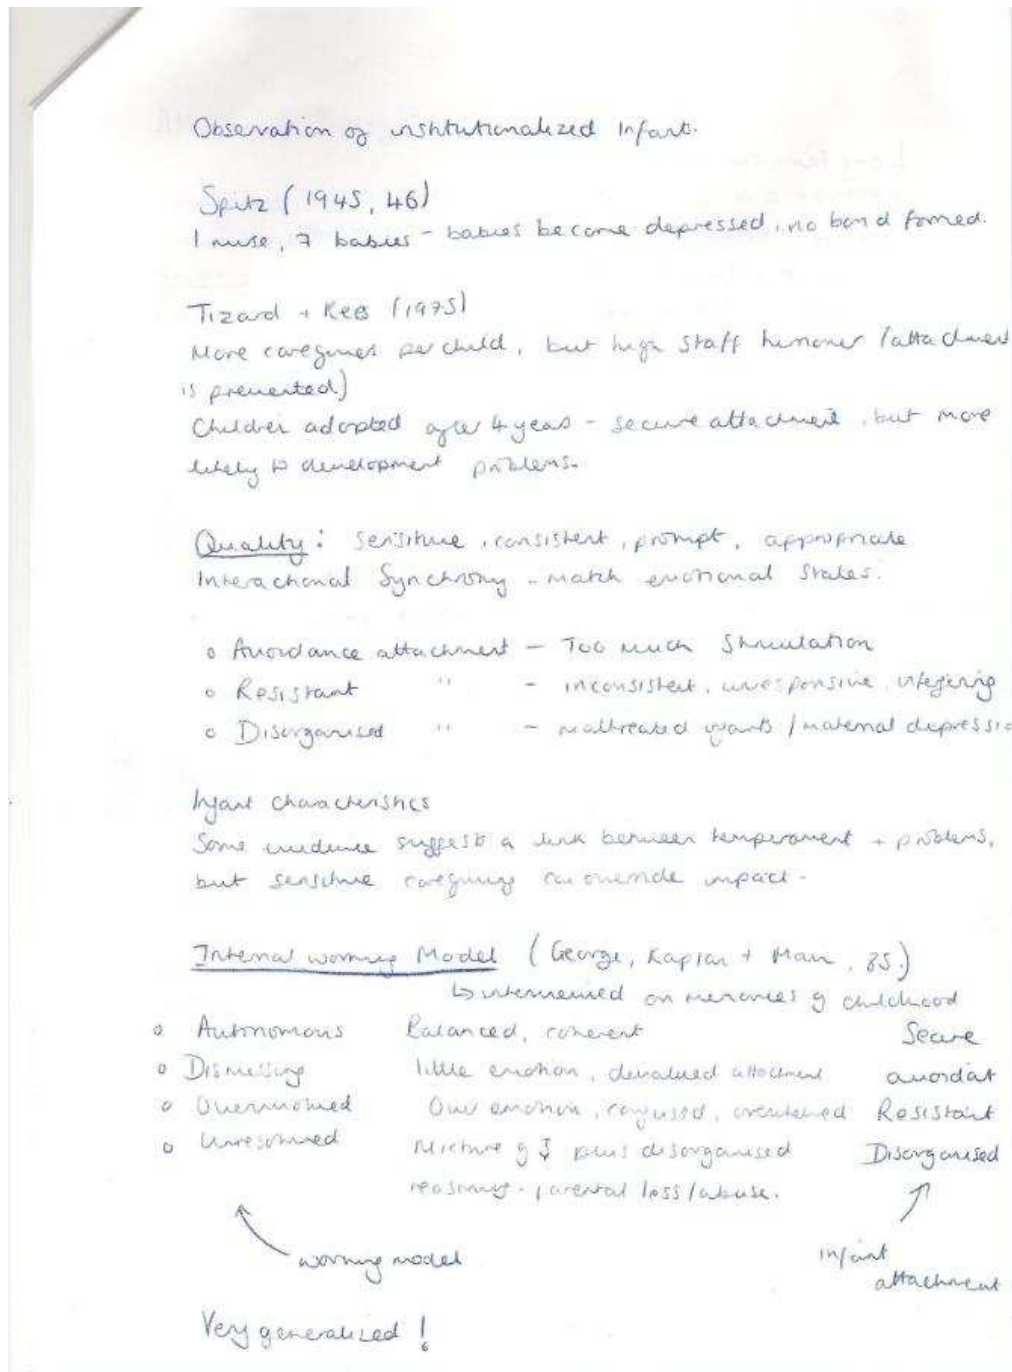 Observation of institutionalized Infants.
Spitz (1945, 46)
1 nurse, 7 babies - babies become depressed, no bond formed.
Tizard + Rees (1975)
More caregivers per child, but high staff turnover (attachment
is prevented)
Children adopted after 4 years - secure attachment, but more
likely to development problems.
Quality: sensitive, consistent, prompt, appropriate
Interactional Synchrony - match emotional states.
o Avoidance attachment - Too much Stimulation
o Resistant " - inconsistent, unresponsive, interfering
o Disorganised " - maltreated infants / maternal depressio
Infant characteristics
Some evidence suggests a link between temperament + problems,
but sensitive caregiving can override impact.
Internal working Model (George, Kaplan + Main, 85.)
↳ interviewed on memories of childhood
o Autonomous Balanced, coherent Secure
o Dismissing little emotion, devalued attachment avoidat
o Overinvolved Over emotion, confused, Resistant
o Unresolved Mixture of ↕ plus disorganised Disorganised
reasoning - parental loss/abuse.
working model
infant
attachment
Very generalized !